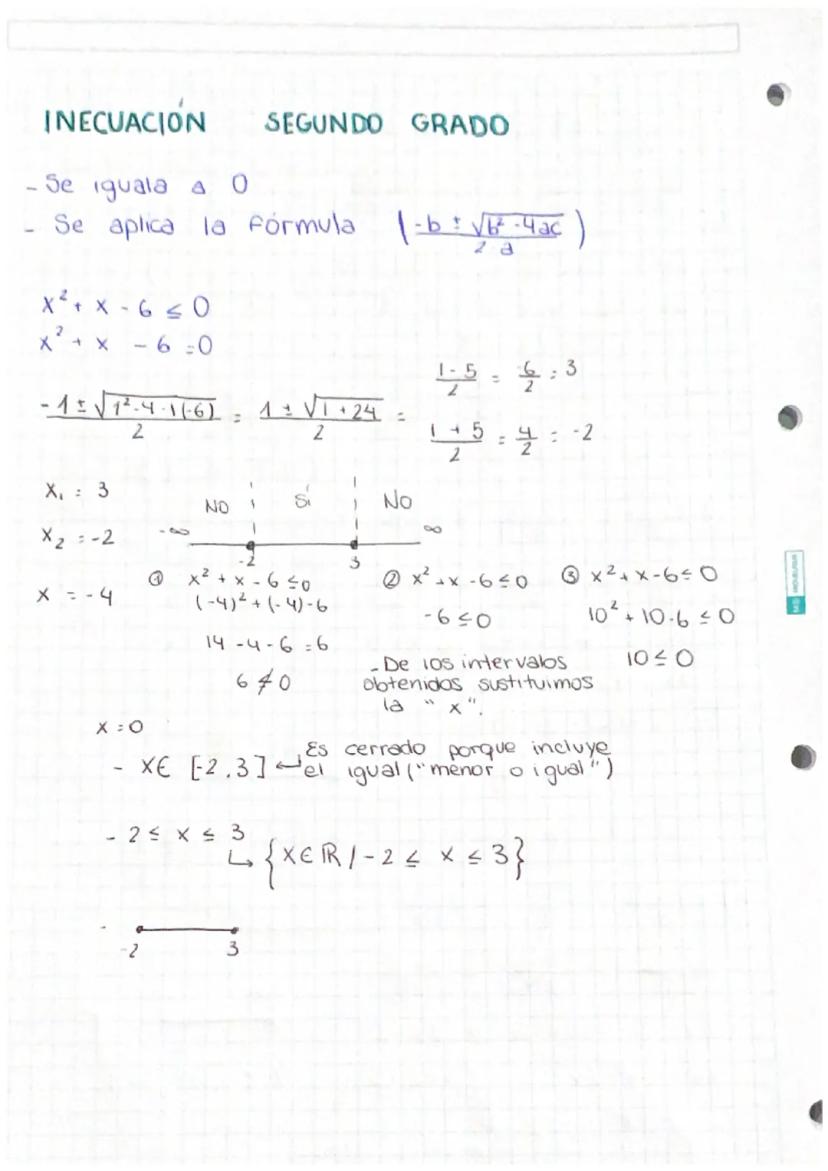 INECUACIÓN SEGUNDO GRADO
- Se iguala a 0
- Se aplica la fórmula (-b ± √b² -4ac / 2a)
x² + x - 6 ≤ 0
x² + x - 6 = 0
-1 ± √1²-4·1(-6) / 2 = 1 ± √1 + 24 / 2 =
1-5 / 2 = -6 / 2 = 3
1+5 / 2 = 4 / 2 = -2
x₁ = 3
x₂ = -2
x = -4
NO Sí NO
-∞ ∞
-2 3
① x² + x - 6 ≤ 0
(-4)² + (-4) - 6
14 - 4 - 6 = 6
6 ≰ 0
② x² + x - 6 ≤ 0
-6 ≤ 0
③ x² + x - 6 ≤ 0
10² + 10 - 6 ≤ 0
10 ≤ 0
- De los intervalos
obtenidos sustituimos
la "x".
x = 0
- x ∈ [-2.3] ↩ Es cerrado porque incluye
el igual ("menor o igual")
- 2 ≤ x ≤ 3
↳ {x ∈ ℝ / -2 ≤ x ≤ 3}
-
-2 3